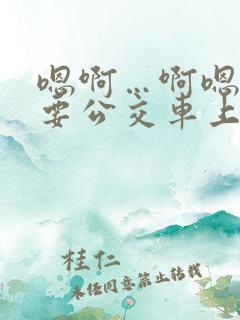 嗯啊…啊嗯
要公交车上
桂仁
未经同意禁止转载